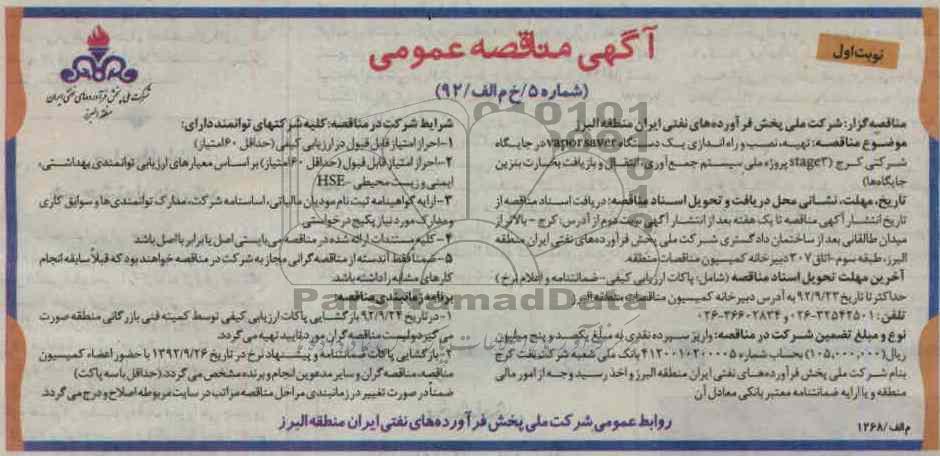 نوبت اول
آگهی مناقصه عمومی
(شماره ۵/خ م الف/۹۲)
شرکت ملی پخش فرآورده‌های نفتی ایران
منطقه البرز
مناقصه گزار: شرکت ملی پخش فرآورده‌های نفتی ایران منطقه البرز
موضوع مناقصه: تهیه، نصب و راه اندازی یک دستگاه vapor saver در جایگاه
شرکتی کرج (stage۳ پروژه ملی سیستم جمع آوری، انتقال و بازیافت بخارت بنزین
جایگاهها)
تاریخ، مهلت، نشانی محل دریافت و تحویل اسناد مناقصه: دریافت اسناد مناقصه از
تاریخ انتشار آگهی مناقصه تا یک هفته بعد از انتشار آگهی نوبت دوم از آدرس: کرج - بالاتر از
میدان طالقانی بعد از ساختمان دادگستری شرکت ملی پخش فرآورده‌های نفتی ایران منطقه
البرز، طبقه سوم-اتاق ۳۰۷ دبیرخانه کمیسیون مناقصات منطقه.
آخرین مهلت تحویل اسناد مناقصه (شامل: پاکات ارزیابی کیفی-ضمانتنامه و اعلام نرخ)
حداکثر تا تاریخ ۹۲/۹/۲۳ به آدرس دبیرخانه کمیسیون مناقصات منطقه البرز
تلفن: ۳۲۵۴۲۵۰۱-۰۲۶ و ۳۶۶۰۲۸۳۴-۰۲۶
نوع و مبلغ تضمین شرکت در مناقصه: واریز سپرده نقدی به مبلغ یکصد و پنج میلیون
ریال(۱۰۵,۰۰۰,۰۰۰) بحساب شماره ۴۱۲۰۰۱۰۲۰۰۰۰۵ بانک ملی شعبه شرکت نفت کرج
بنام شرکت ملی پخش فرآورده‌های نفتی ایران منطقه البرز و اخذ رسید وجه از امور مالی
منطقه و یا ارایه ضمانتنامه معتبر بانکی معادل آن
شرایط شرکت در مناقصه: کلیه شرکتهای توانمند دارای:
۱-احراز امتیاز قابل قبول در ارزیابی کیفی (حداقل ۶۰ امتیاز)
۲-احراز امتیاز قابل قبول (حداقل ۶۰ امتیاز) بر اساس معیارهای ارزیابی توانمندی بهداشتی،
ایمنی و زیست محیطی-HSE
۳-ارایه گواهینامه ثبت نام مودیان مالیاتی، اساسنامه شرکت، مدارک توانمندی‌ها و سوابق کاری
و مدارک مورد نیاز پکیج درخواستی
۴-کلیه مستندات ارائه شده در مناقصه می‌بایستی اصل یا برابر با اصل باشد
۵-ضمنا فقط آندسته از مناقصه گرانی مجاز به شرکت در مناقصه خواهند بود که قبلا سابقه انجام
کارهای مشابه را داشته باشد.
برنامه زمانبندی مناقصه:
۱-در تاریخ ۹۲/۹/۲۴ بازگشایی پاکات ارزیابی کیفی توسط کمیته فنی بازرگانی منطقه صورت
می گیرد و لیست مناقصه گران مورد تایید تهیه می گردد.
۲-بازگشایی پاکات ضمانتنامه و پیشنهاد نرخ در تاریخ ۱۳۹۲/۹/۲۶ با حضور اعضاء کمیسیون
مناقصه، مناقصه گران و سایر مدعوین انجام و برنده مشخص می گردد.(حداقل با سه پاکت)
ضمناً در صورت تغییر در زمانبندی مراحل مناقصه مراتب در سایت مربوطه اصلاح و درج می گردد.
روابط عمومی شرکت ملی پخش فرآورده‌های نفتی ایران منطقه البرز
م الف/۱۲۶۸
ParsNamadData